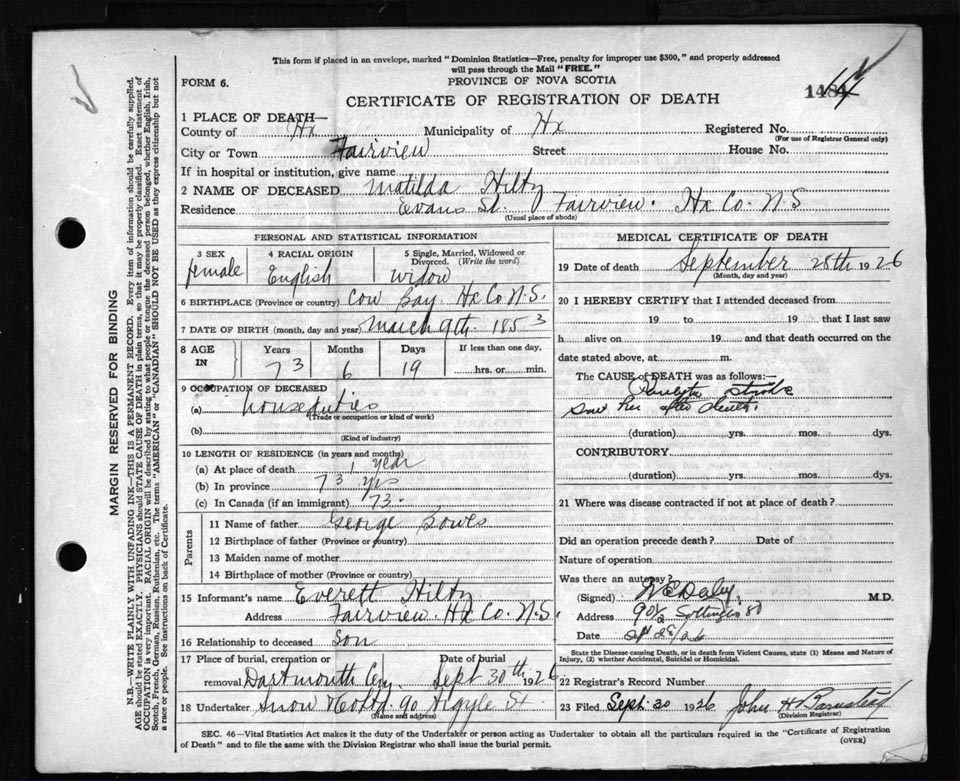 This form if placed in an envelope, marked "Dominion Statistics—Free, penalty for improper use $300," and properly addressed
will pass through the Mail "FREE."
FORM 6.
PROVINCE OF NOVA SCOTIA
CERTIFICATE OF REGISTRATION OF DEATH
1 PLACE OF DEATH—
County of Hx Municipality of Hx Registered No.
(For use of Registrar General only)
City or Town Fairview Street House No.
If in hospital or institution, give name
2 NAME OF DECEASED Matilda Hiltz
Residence Evans St. Fairview. Hx Co. N.S
(Usual place of abode)
PERSONAL AND STATISTICAL INFORMATION
3 SEX 4 RACIAL ORIGIN 5 Single, Married, Widowed or
Divorced. (Write the word)
female English widow
6 BIRTHPLACE (Province or country) Cow Bay. Hx Co N.S.
7 DATE OF BIRTH (month, day and year) March 9th. 1853
8 AGE IN Years Months Days If less than one day,
73 6 19 hrs. or min.
9 OCCUPATION OF DECEASED
(a) house duties
(Trade or occupation or kind of work)
(b)
(Kind of industry)
10 LENGTH OF RESIDENCE (in years and months)
(a) At place of death 1 year
(b) In province 73 yrs
(c) In Canada (if an immigrant) 73.
Parents
11 Name of father George
12 Birthplace of father (Province or country)
13 Maiden name of mother
14 Birthplace of mother (Province or country)
15 Informant's name Everett Hiltz
Address Fairview. Hx Co. N.S.
16 Relationship to deceased Son
17 Place of burial, cremation or Date of burial
removal Dartmouth Cem Sept 30th 1926
18 Undertaker Snow & Co Ltd 90 Argyle St
(Name and address)
MEDICAL CERTIFICATE OF DEATH
19 Date of death September 28th 1926
(Month, day and year)
20 I HEREBY CERTIFY that I attended deceased from
19 to 19 that I last saw
h alive on 19 and that death occurred on the
date stated above, at m.
The CAUSE of DEATH was as follows:—
stroke
saw her after death.
(duration) yrs. mos. dys.
CONTRIBUTORY
(duration) yrs. mos. dys.
21 Where was disease contracted if not at place of death?
Did an operation precede death? Date of
Nature of operation
Was there an autopsy?
(Signed) M.D.
Address
Date
State the Disease causing Death, or in death from Violent Causes, state (1) Means and Nature of
Injury, (2) whether Accidental, Suicidal or Homicidal.
22 Registrar's Record Number
23 Filed Sept. 30 1926 John H Barnstead
(Division Registrar)
SEC. 46—Vital Statistics Act makes it the duty of the Undertaker or person acting as Undertaker to obtain all the particulars required in the "Certificate of Registration
of Death" and to file the same with the Division Registrar who shall issue the burial permit.
(OVER)
MARGIN RESERVED FOR BINDING
N.B.—WRITE PLAINLY WITH UNFADING INK—THIS IS A PERMANENT RECORD. Every item of information should be carefully supplied.
AGE should be stated EXACTLY. PHYSICIANS should STATE CAUSE OF DEATH in plain terms, so that it may be properly classified. Exact statement of
OCCUPATION is very important. RACIAL ORIGIN will be described by stating to what people or tongue the deceased person belonged, whether English, Irish,
Scotch, French, German, Russian, Ruthenian, etc. The terms "AMERICAN" or "CANADIAN" SHOULD NOT BE USED as they express citizenship but not
a race or people. See instructions on back of Certificate.